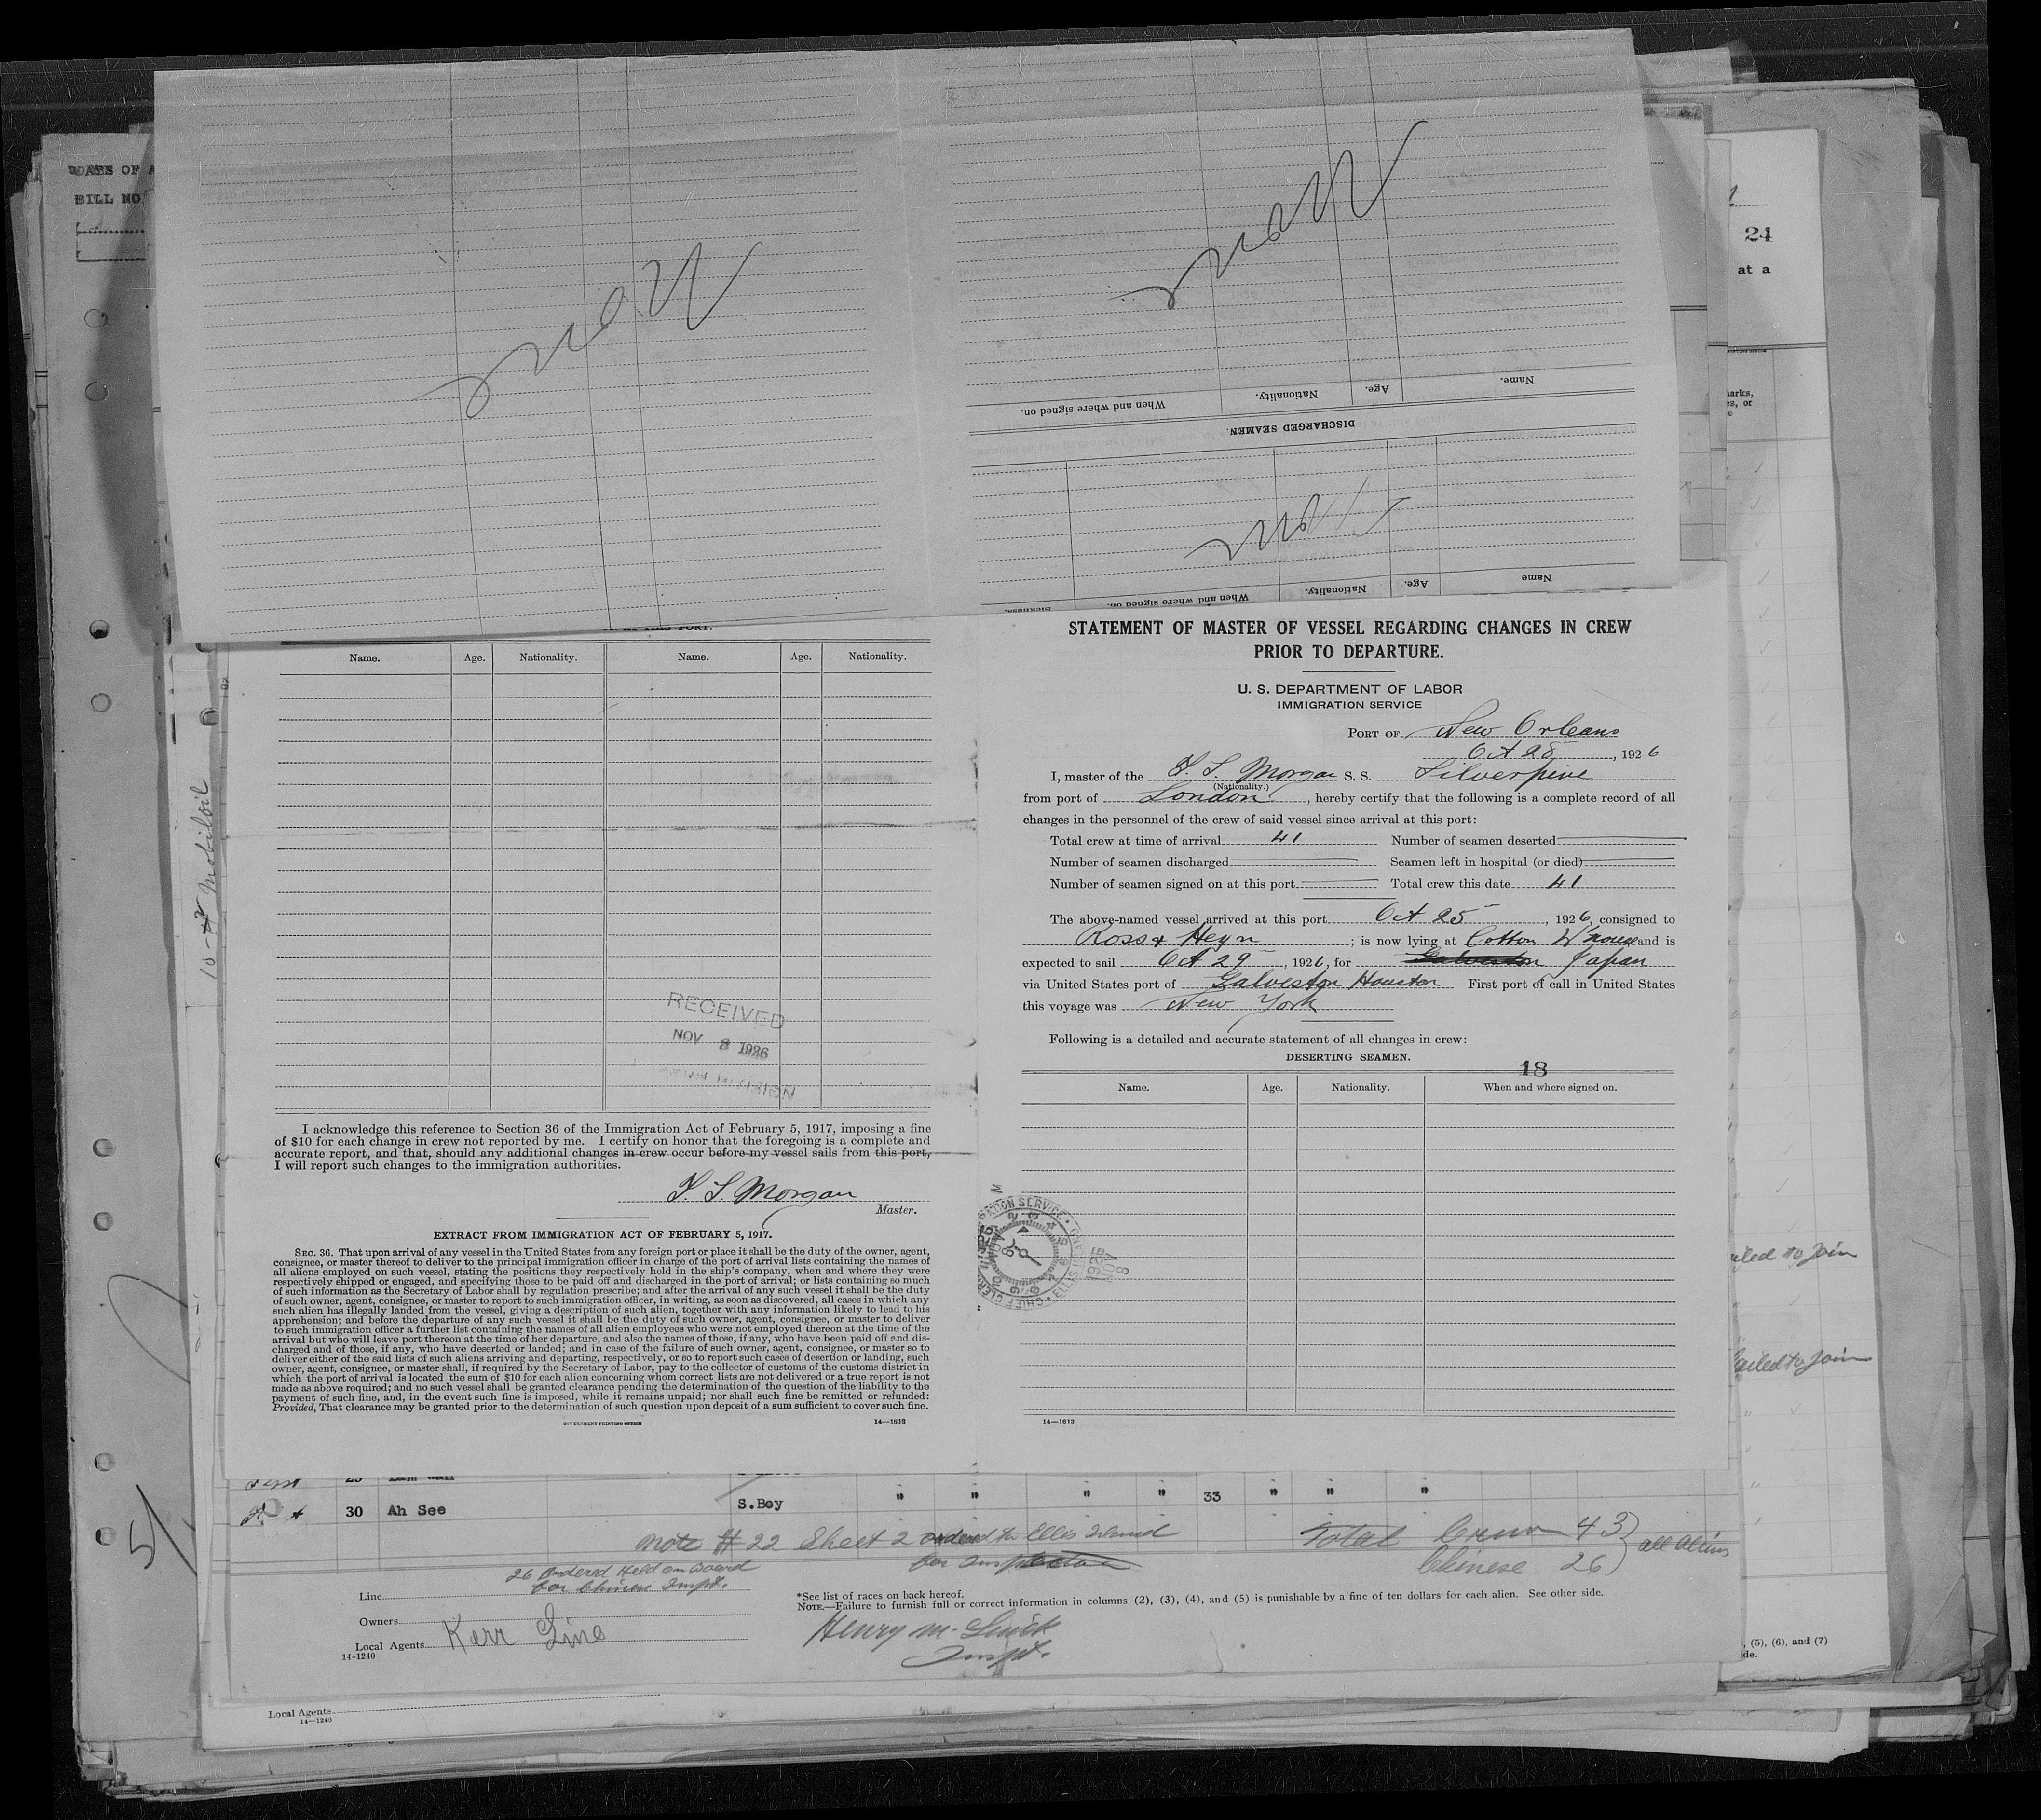 DATE OF A
BILL NO
24
at a
None
None
Name.
Age.
Nationality.
When and where signed on.
DISCHARGED SEAMEN.
Name
Age.
Nationality.
When and where signed on.
Sickness.
THIS PORT.
Name. Age. Nationality. Name. Age. Nationality.
10 - Mobiloil
RECEIVED
NOV 8 1926
DIVISION
I acknowledge this reference to Section 36 of the Immigration Act of February 5, 1917, imposing a fine
of $10 for each change in crew not reported by me. I certify on honor that the foregoing is a complete and
accurate report, and that, should any additional changes in crew occur before my vessel sails from this port,
I will report such changes to the immigration authorities.
Morgan
Master.
EXTRACT FROM IMMIGRATION ACT OF FEBRUARY 5, 1917.
SEC. 36. That upon arrival of any vessel in the United States from any foreign port or place it shall be the duty of the owner, agent,
consignee, or master thereof to deliver to the principal immigration officer in charge of the port of arrival lists containing the names of
all aliens employed on such vessel, stating the positions they respectively hold in the ship's company, when and where they were
respectively shipped or engaged, and specifying those to be paid off and discharged in the port of arrival; or lists containing so much
of such information as the Secretary of Labor shall by regulation prescribe; and after the arrival of any such vessel it shall be the duty
of such owner, agent, consignee, or master to report to such immigration officer, in writing, as soon as discovered, all cases in which any
such alien has illegally landed from the vessel, giving a description of such alien, together with any information likely to lead to his
apprehension; and before the departure of any such vessel it shall be the duty of such owner, agent, consignee, or master to deliver
to such immigration officer a further list containing the names of all alien employees who were not employed thereon at the time of the
arrival but who will leave port thereon at the time of her departure, and also the names of those, if any, who have been paid off and dis-
charged and of those, if any, who have deserted or landed; and in case of the failure of such owner, agent, consignee, or master so to
deliver either of the said lists of such aliens arriving and departing, respectively, or so to report such cases of desertion or landing, such
owner, agent, consignee, or master shall, if required by the Secretary of Labor, pay to the collector of customs of the customs district in
which the port of arrival is located the sum of $10 for each alien concerning whom correct lists are not delivered or a true report is not
made as above required; and no such vessel shall be granted clearance pending the determination of the question of the liability to the
payment of such fine, and, in the event such fine is imposed, while it remains unpaid; nor shall such fine be remitted or refunded:
Provided, That clearance may be granted prior to the determination of such question upon deposit of a sum sufficient to cover such fine.
GOVERNMENT PRINTING OFFICE 14—1613
STATEMENT OF MASTER OF VESSEL REGARDING CHANGES IN CREW
PRIOR TO DEPARTURE.
U. S. DEPARTMENT OF LABOR
IMMIGRATION SERVICE
PORT OF New Orleans
Oct 25, 1926
I, master of the Morgan S. S. Silverpine
(Nationality.)
from port of London, hereby certify that the following is a complete record of all
changes in the personnel of the crew of said vessel since arrival at this port:
Total crew at time of arrival 41 Number of seamen deserted
Number of seamen discharged Seamen left in hospital (or died)
Number of seamen signed on at this port Total crew this date 41
The above-named vessel arrived at this port Oct 25, 1926, consigned to
Ross & Heyn; is now lying at Cotton W'house and is
expected to sail Oct 29, 1926, for Galveston Japan
via United States port of Galveston Houston First port of call in United States
this voyage was New York
Following is a detailed and accurate statement of all changes in crew:
DESERTING SEAMEN.
18
Name. Age. Nationality. When and where signed on.
NOV 8 1926
14—1613
iled to Join
ailed to Join
30 Ah See S.Boy " " " " 33 " " "
Note # 22 Sheet 2 ordered to Ellis Island
for Inspection
Total Crew 43
Chinese 26
all Aliens
26 Ordered Held on Board
for Chinese Inspt.
Line
Owners
Local Agents Kerr Line
14-1240
*See list of races on back hereof.
NOTE.—Failure to furnish full or correct information in columns (2), (3), (4), and (5) is punishable by a fine of ten dollars for each alien. See other side.
Inspt.
, (5), (6), and (7)
de.
Local Agents
14—1240